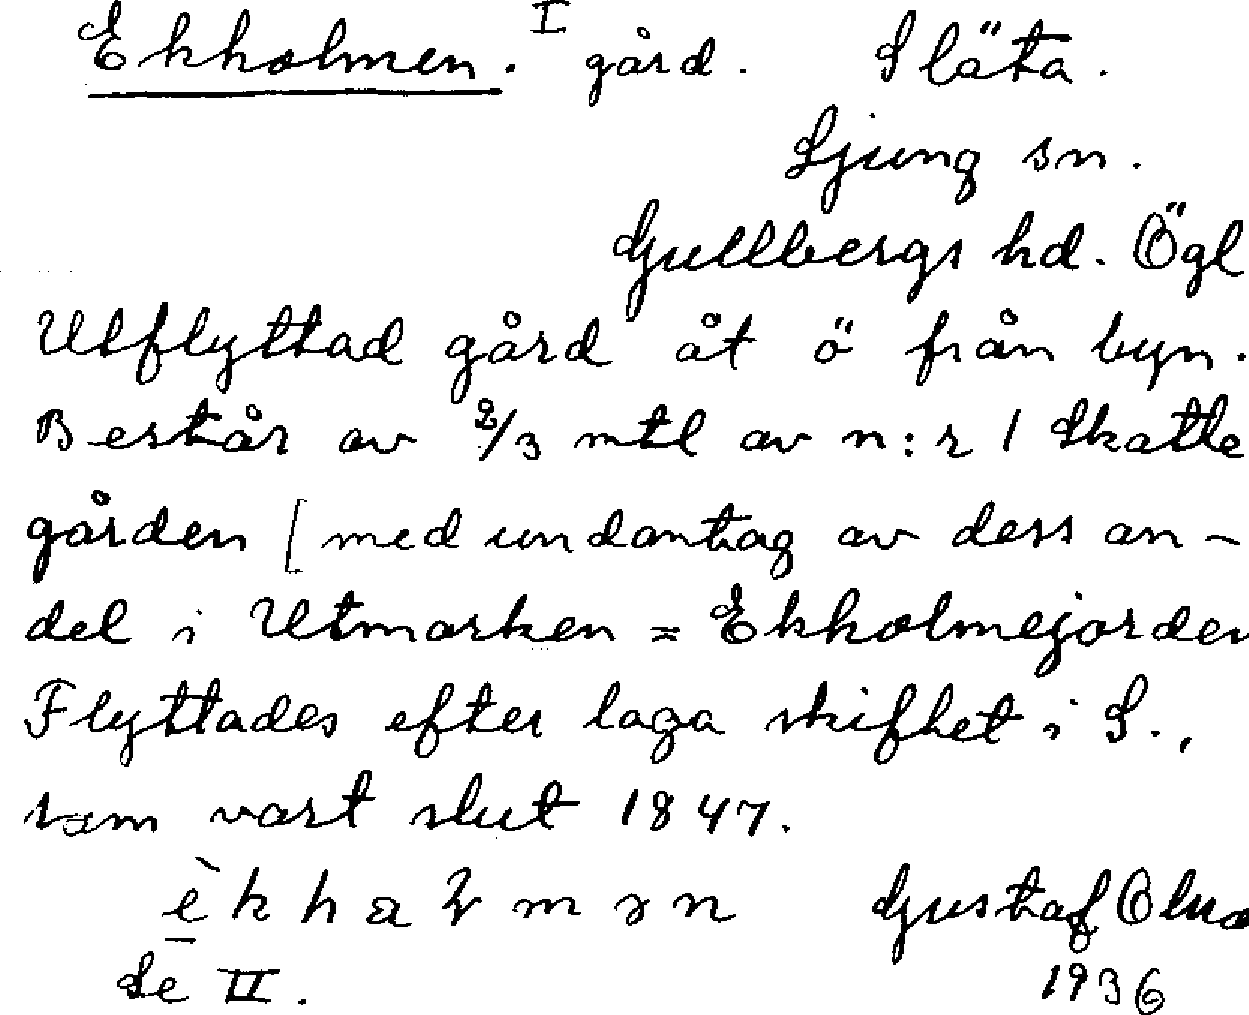 Ekholmen. I gård. Släta.
Ljung sn.
Gullbergs hd. Ögl
Utflyttad gård åt ö från byn.
Består av 2/3 mtl av n:r 1 Skatte
gården [med undantag av dess an-
del i Utmarken = Ekholmejorden
Flyttades efter laga skiftet i S.,
som vart slut 1847.
è k h a m ə n Gustaf
Se II. 1936